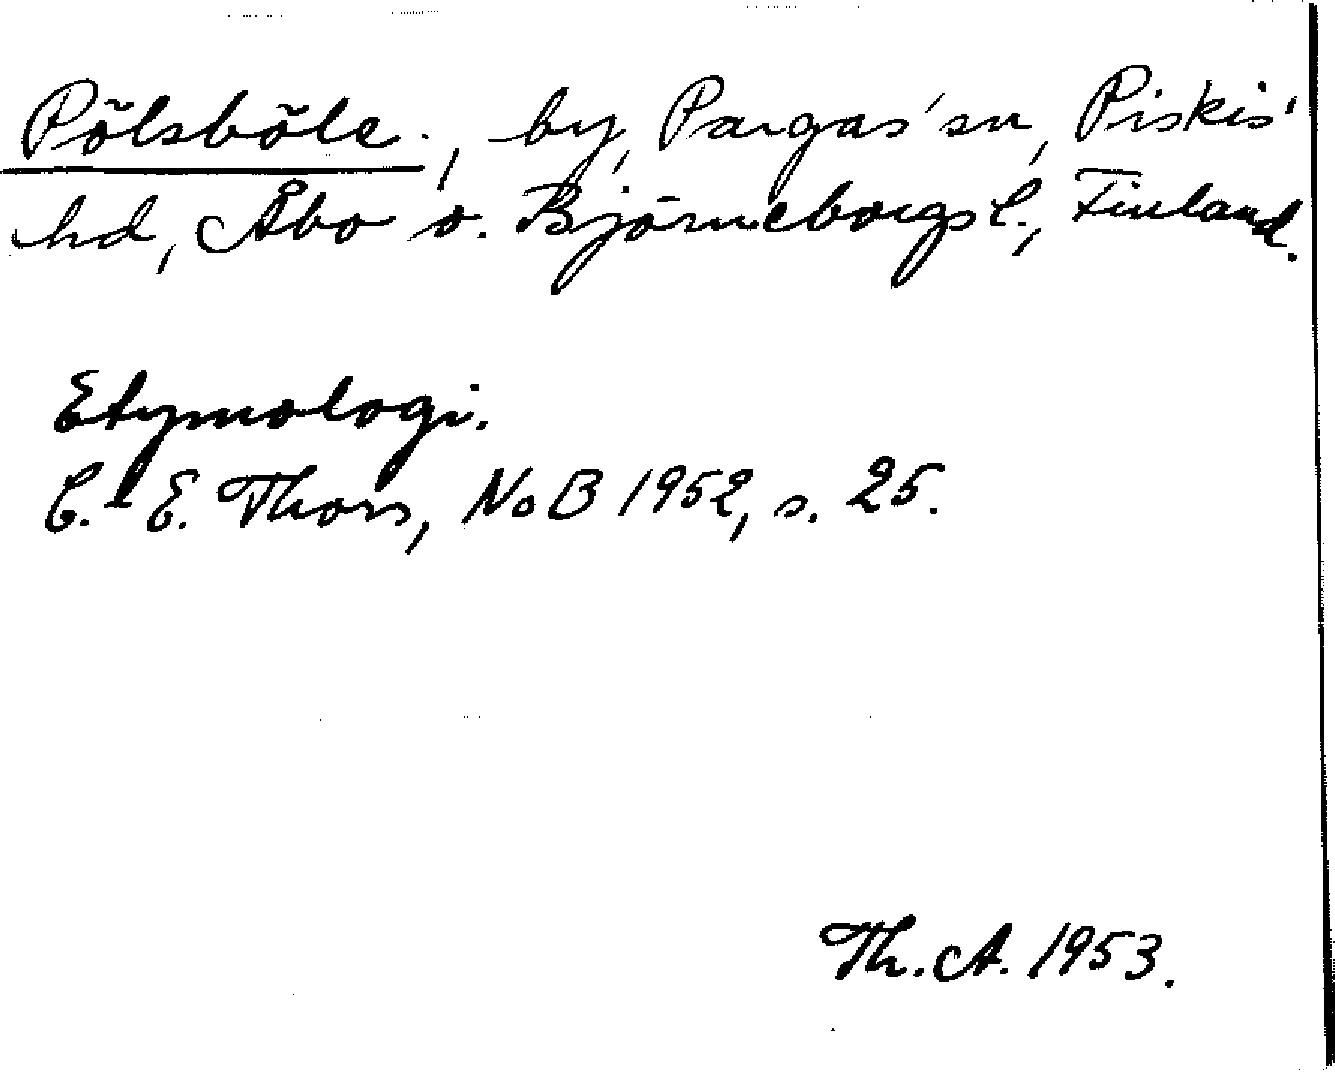 Pölsböle., by, Pargas' sn, Piskis'
hd, Åbo o. Björneborgs l., Finland.
Etymologi.
C.-E. Thors, NoB 1952, s. 25.
Th. A. 1953.